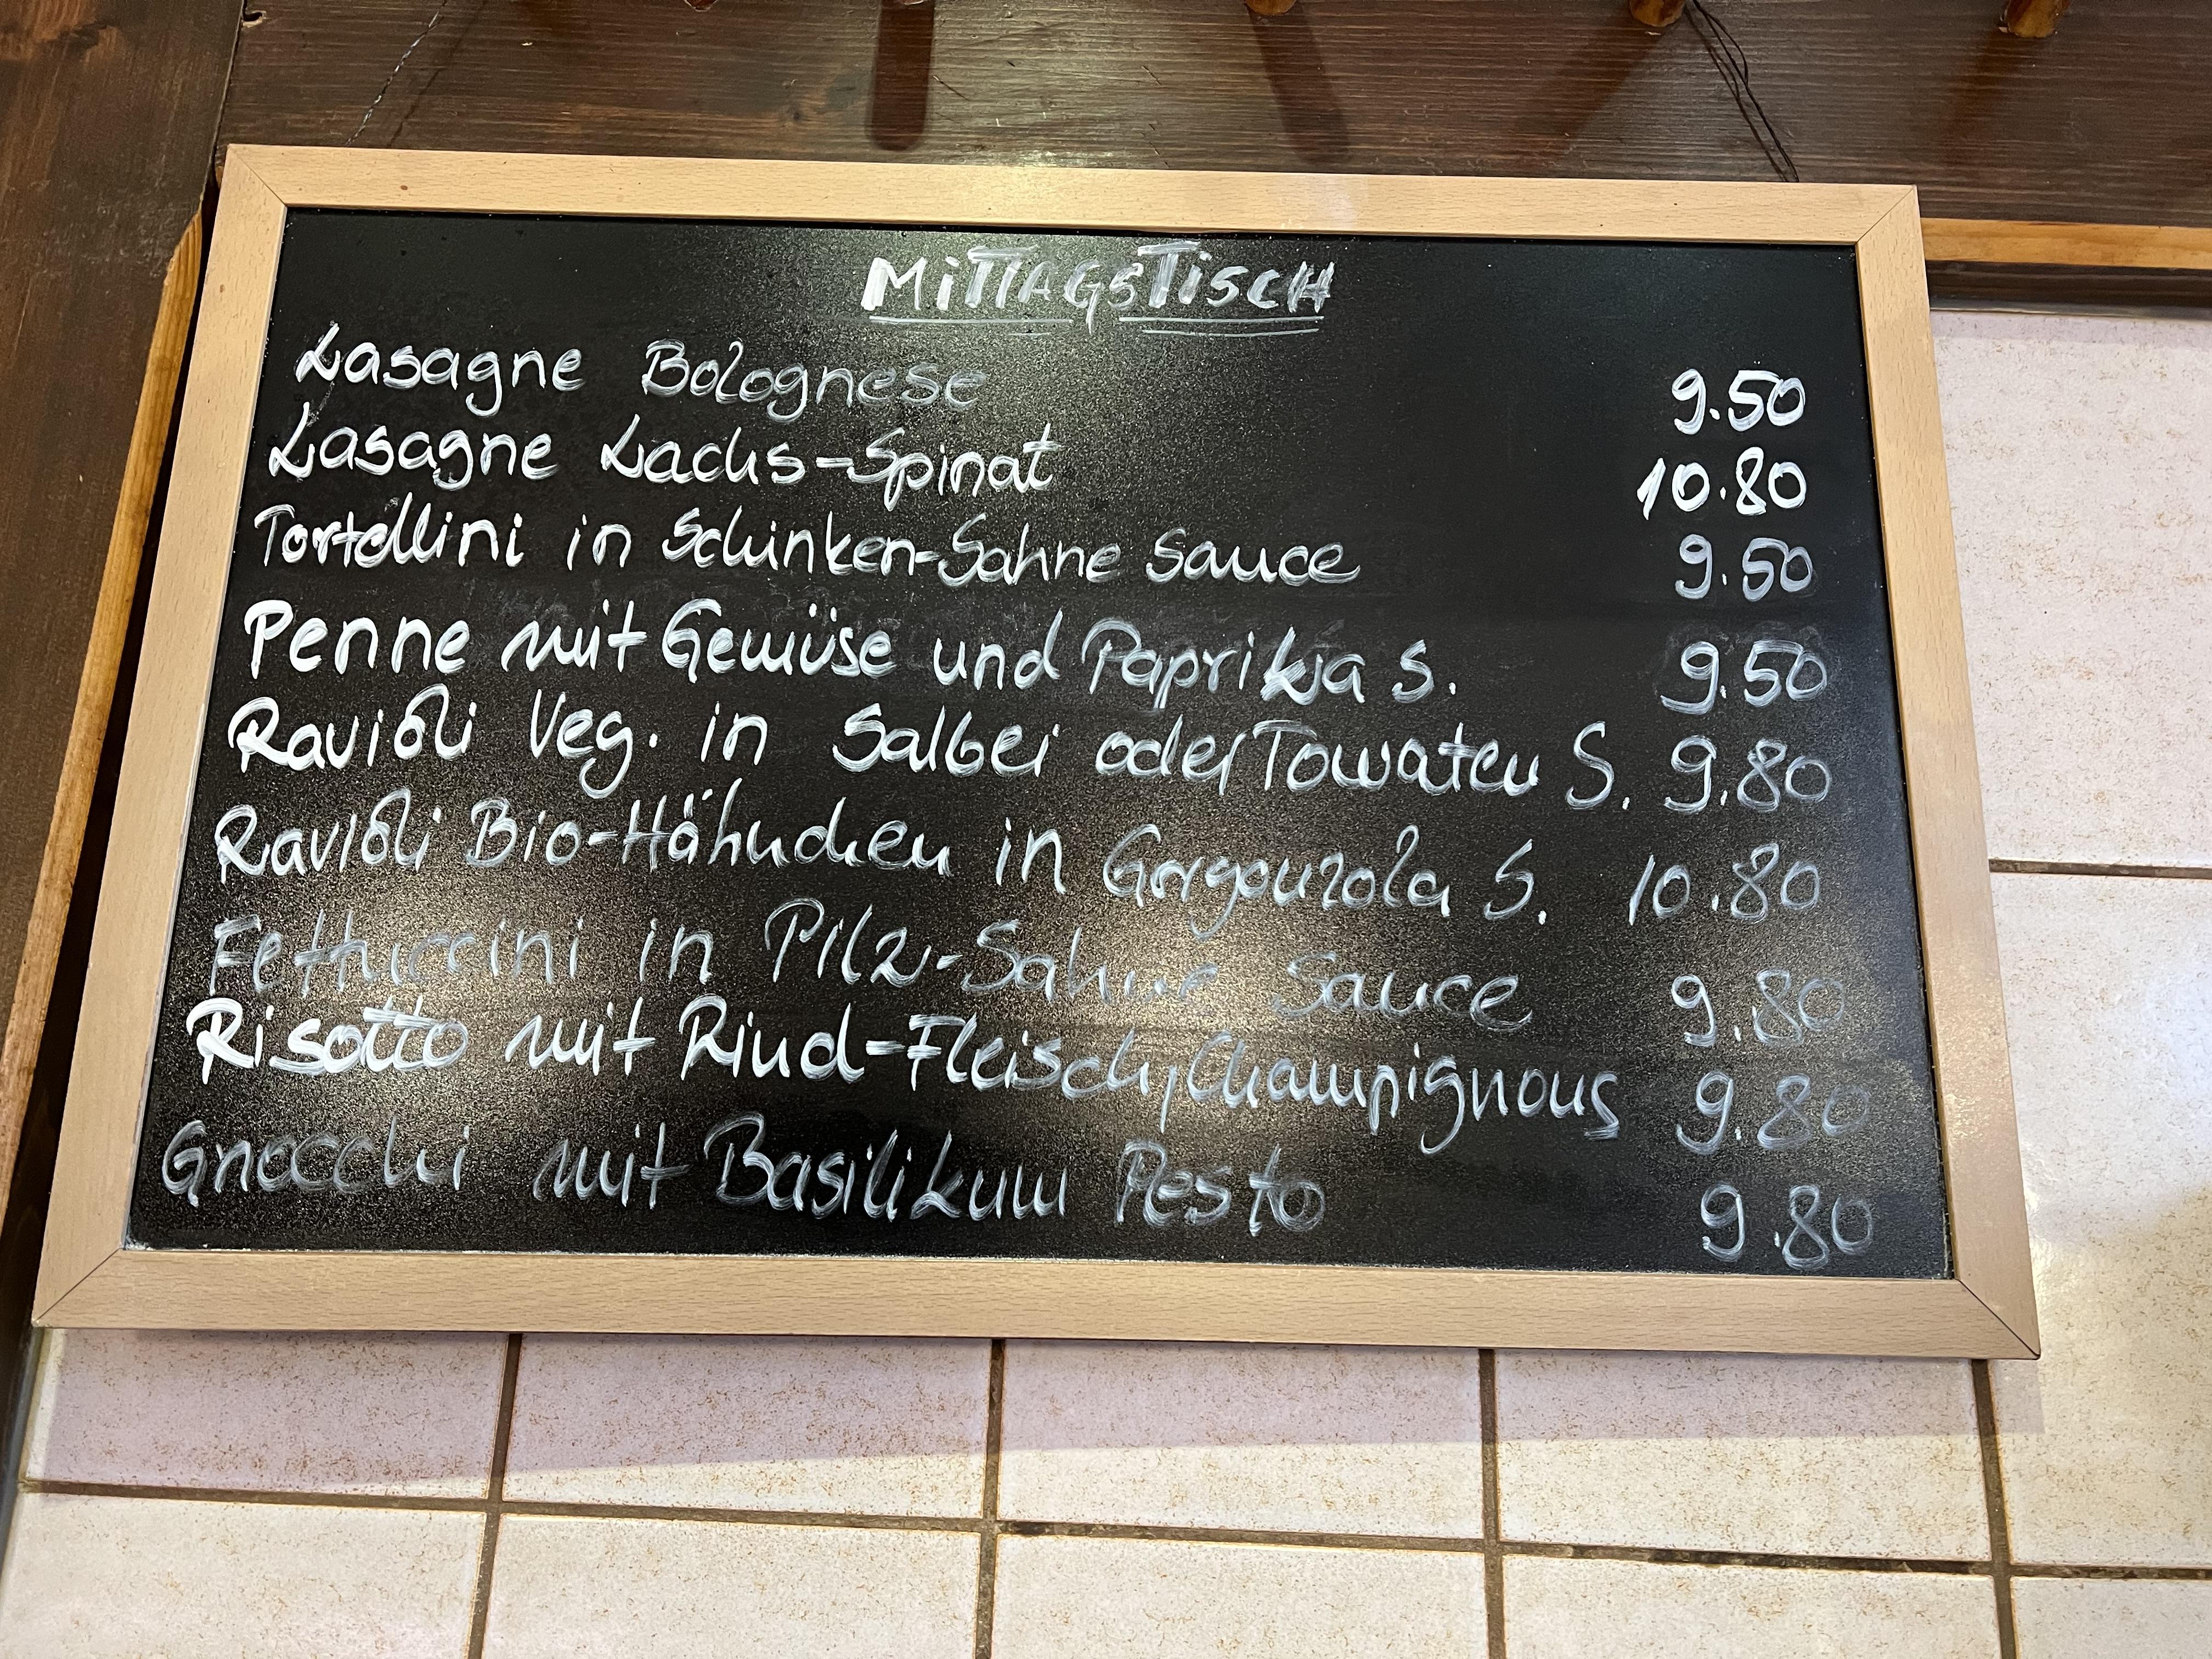 MiTTAGSTiSCH
Lasagne Bolognese 9.50
Lasagne Lachs-Spinat 10.80
Tortellini in Schinken-Sahne Sauce 9.50
Penne mit Gemüse und Paprika S. 9.50
Ravioli Veg. in Salbei oder Tomaten S. 9.80
Ravioli Bio-Hähnchen in Gorgonzola S. 10.80
Fettuccini in Pilz-Sahne Sauce 9.80
Risotto mit Rind-Fleisch, Champignons 9.80
Gnocchi mit Basilikum Pesto 9.80